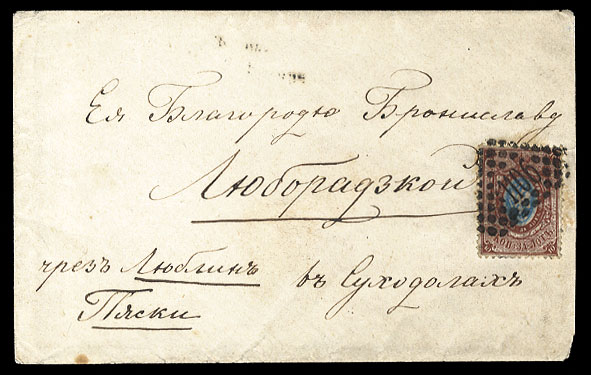 Ея Благородю Брониславѣ
Люборадзкой
чрезъ Люблинъ въ Суходолахъ
Пяски